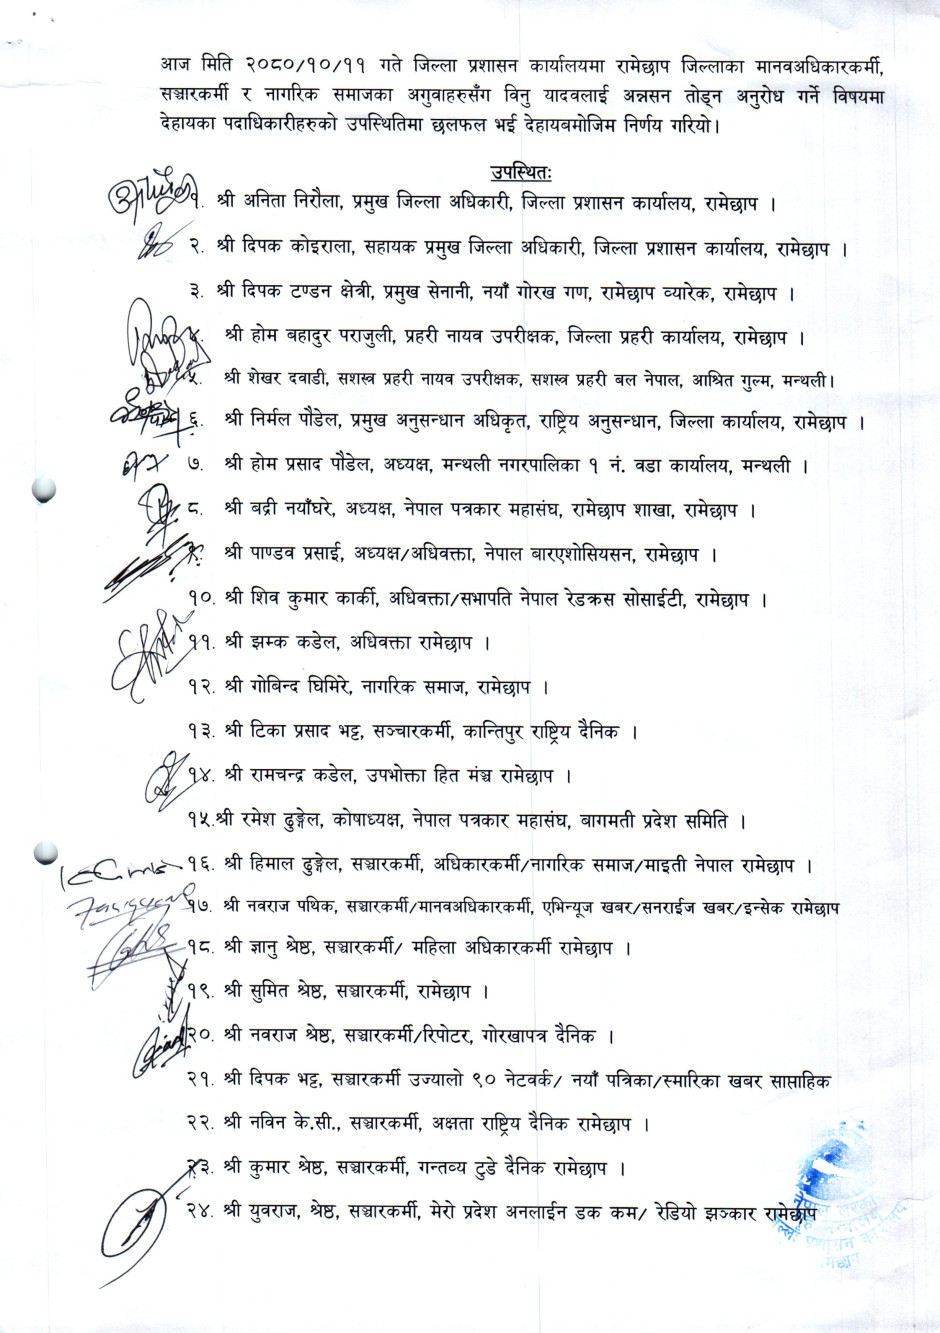 आज मिति २०८०/१०/११ गते जिल्ला प्रशासन कार्यालयमा रामेछाप जिल्लाका मानवअधिकारकर्मी,
सञ्चारकर्मी र नागरिक समाजका अगुवाहरुसँग विनु यादवलाई अन्नसन तोड्न अनुरोध गर्ने विषयमा
देहायका पदाधिकारीहरुको उपस्थितिमा छलफल भई देहायबमोजिम निर्णय गरियो।
उपस्थितः
१. श्री अनिता निरौला, प्रमुख जिल्ला अधिकारी, जिल्ला प्रशासन कार्यालय, रामेछाप ।
२. श्री दिपक कोइराला, सहायक प्रमुख जिल्ला अधिकारी, जिल्ला प्रशासन कार्यालय, रामेछाप ।
३. श्री दिपक टण्डन क्षेत्री, प्रमुख सेनानी, नयाँ गोरख गण, रामेछाप व्यारेक, रामेछाप ।
४. श्री होम बहादुर पराजुली, प्रहरी नायव उपरीक्षक, जिल्ला प्रहरी कार्यालय, रामेछाप ।
५. श्री शेखर दवाडी, सशस्त्र प्रहरी नायव उपरीक्षक, सशस्त्र प्रहरी बल नेपाल, आश्रित गुल्म, मन्थली।
६. श्री निर्मल पौडेल, प्रमुख अनुसन्धान अधिकृत, राष्ट्रिय अनुसन्धान, जिल्ला कार्यालय, रामेछाप ।
७. श्री होम प्रसाद पौडेल, अध्यक्ष, मन्थली नगरपालिका १ नं. वडा कार्यालय, मन्थली ।
८. श्री बद्री नयाँघरे, अध्यक्ष, नेपाल पत्रकार महासंघ, रामेछाप शाखा, रामेछाप ।
९. श्री पाण्डव प्रसाई, अध्यक्ष/अधिवक्ता, नेपाल बारएशोसियसन, रामेछाप ।
१०. श्री शिव कुमार कार्की, अधिवक्ता/सभापति नेपाल रेडक्रस सोसाईटी, रामेछाप ।
११. श्री झम्क कडेल, अधिवक्ता रामेछाप ।
१२. श्री गोबिन्द घिमिरे, नागरिक समाज, रामेछाप ।
१३. श्री टिका प्रसाद भट्ट, सञ्चारकर्मी, कान्तिपुर राष्ट्रिय दैनिक ।
१४. श्री रामचन्द्र कडेल, उपभोक्ता हित मंञ्च रामेछाप ।
१५.श्री रमेश ढुङ्गेल, कोषाध्यक्ष, नेपाल पत्रकार महासंघ, बागमती प्रदेश समिति ।
१६. श्री हिमाल ढुङ्गेल, सञ्चारकर्मी, अधिकारकर्मी/नागरिक समाज/माइती नेपाल रामेछाप ।
१७. श्री नवराज पथिक, सञ्चारकर्मी/मानवअधिकारकर्मी, एभिन्यूज खबर/सनराईज खबर/इन्सेक रामेछाप
१८. श्री ज्ञानु श्रेष्ठ, सञ्चारकर्मी/ महिला अधिकारकर्मी रामेछाप ।
१९. श्री सुमित श्रेष्ठ, सञ्चारकर्मी, रामेछाप ।
२०. श्री नवराज श्रेष्ठ, सञ्चारकर्मी/रिपोटर, गोरखापत्र दैनिक ।
२१. श्री दिपक भट्ट, सञ्चारकर्मी उज्यालो ९० नेटवर्क/ नयाँ पत्रिका/स्मारिका खबर साप्ताहिक
२२. श्री नविन के.सी., सञ्चारकर्मी, अक्षता राष्ट्रिय दैनिक रामेछाप ।
२३. श्री कुमार श्रेष्ठ, सञ्चारकर्मी, गन्तव्य टुडे दैनिक रामेछाप ।
२४. श्री युवराज, श्रेष्ठ, सञ्चारकर्मी, मेरो प्रदेश अनलाईन डक कम/ रेडियो झञ्कार रामेछाप